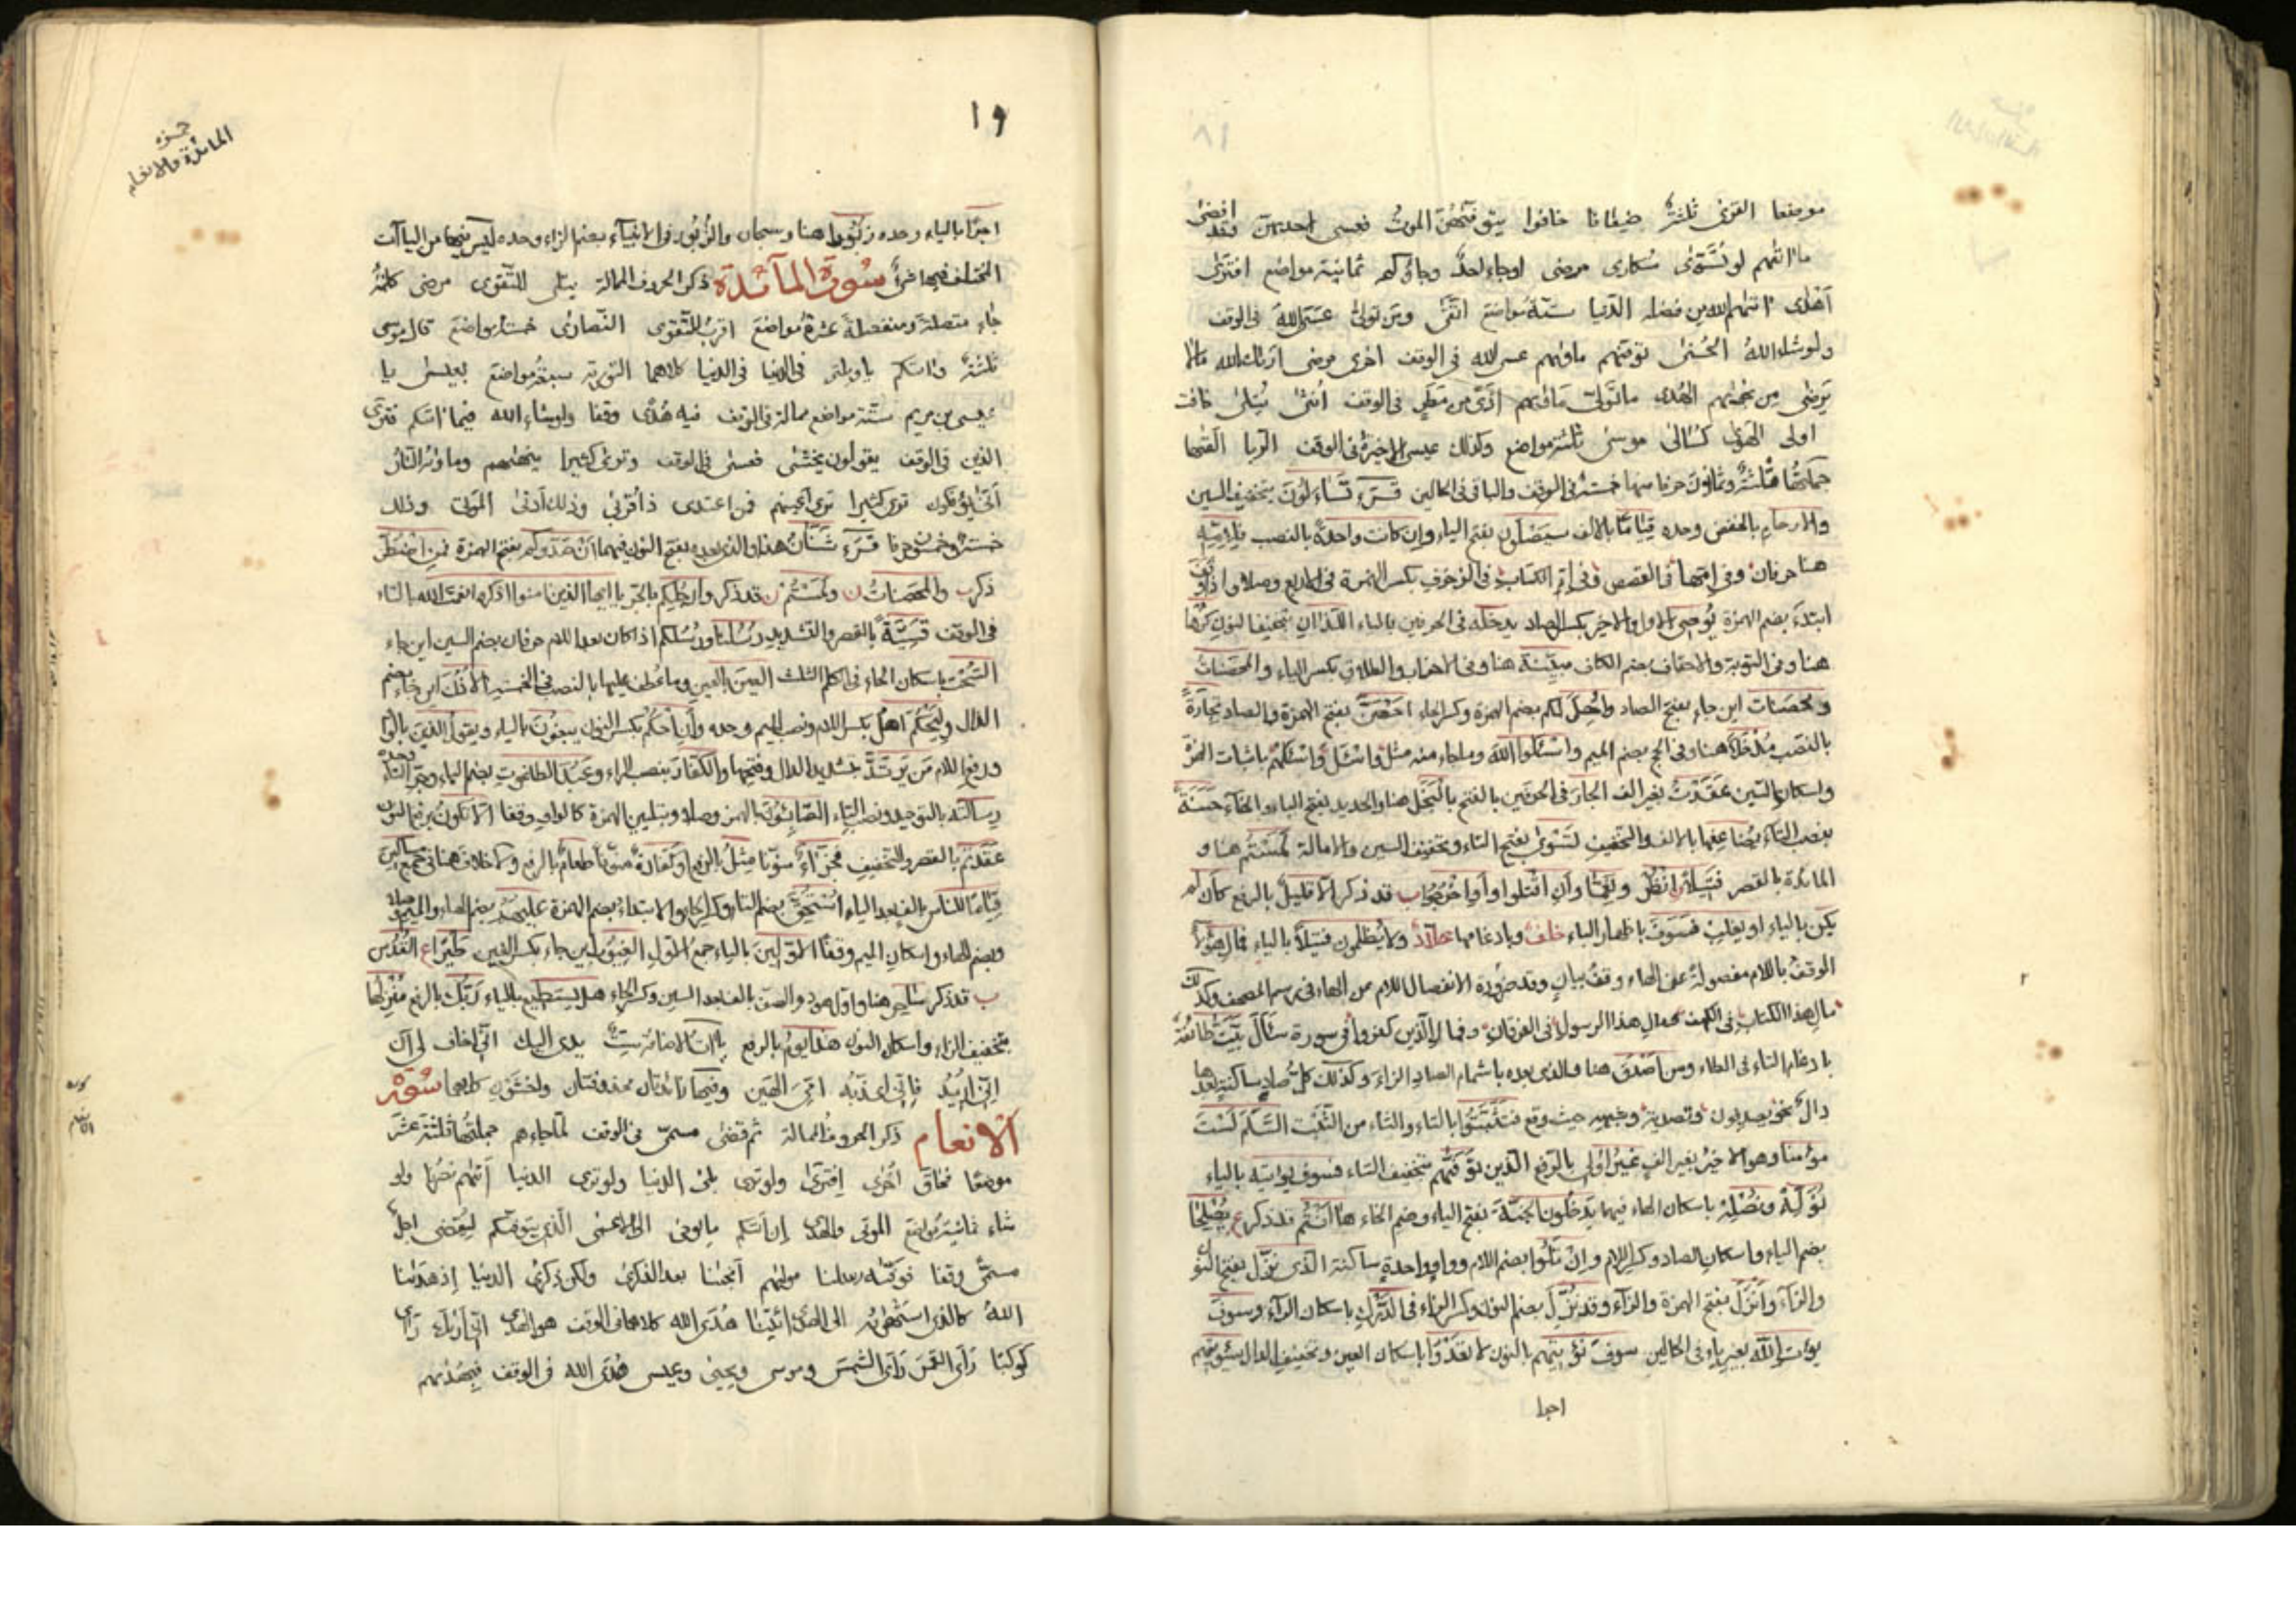 موضعا القربى ثلثة ضعافا خافوا يتوفّهنّ الموت فعسى احديهن وقد افضى
ما اتيهم لو تسّوّى سكارى مرضى او جاء احد وجاؤكم ثمانية مواضع افترى
اهدى اتيهم الله من فضله الدنيا ستة مواضع اتقى ومن تولى عسى الله في الوقف
ولو شاء الله الحسنى توفيهم ماويهم عسى الله في الوقف اخرى مرضى اريك الله ما لا
يرضى من نجويهم الهدى ما تولى ماويهم اذى من مطر في الوقف انثى يتلى كانت
اولى الهوى كسالى موسى ثلثة مواضع وكذلك عيسى الاخيرة في الوقف الربا القيها
جملتها ثلثة وثمانون حرفا منها خمسة في الوقف والباقي في الحالين قرء تساءلون بتخفيف السين
والارحام بالخفض وحده قياما بالالف سيصلون بفتح الياء وان كانت واحدة بالنصب فلامه
هنا حرفان وفي امها في القصص وفي ام الكتاب في الزخرف بكسر الهمزة في الاربع وصلا واذا وقف
ابتدء بضم الهمزة يوصى الاول والاخير بكسر الصاد يدخله في الحرفين بالياء اللذان بتخفيف النون كرها
هنا وفي التوبة والاحقاف بضم الكاف مبينة هنا وفي الاحزاب والطلاق بكسر الياء والمحصنات
ومحصنات اين جاء بفتح الصاد واحل لكم بضم الهمزة وكسر الحاء احصن بفتح الهمزة والصاد تجارة
بالنصب مدخلا هنا وفي الحج بضم الميم واسئلوا الله وما جاء منه مثل واسئل واسئلهم باثبات الهمزة
واسكان السين عقدت بغير الف الجار في الحرفين بالفتح بالبخل هنا والحديد بفتح الباء والخاء حسنة
بنصب التاء يضاعفها بالالف والتخفيف تسوى بفتح التاء وتخفيف السين والامالة لمستم هنا و
المائدة بالقصر فتيلا انظر ونعما وان اقتلوا او اخرجوا ب قد ذكر الا قليل بالرفع كان لم
يكن بالياء او يغلب فسوف باظهار الباء خلف وبادغامها خلاد ولا يظلمون فتيلا بالياء فمال هؤلاء
الوقف باللام مفصولة عن الهاء وقف بيان وقد ضرورة الانفصال اللام من الهاء في رسم المصحف وكذلك
مال هذا الكتاب في الكهف ومال هذا الرسول في الفرقان وفمال الذين كفروا في سورة سال بيت طائفة
بادغام التاء في الطاء ومن اصدق هنا والذي بعده باشمام الصاد الزاء وكذلك كل صاد ساكنة بعدها
دال نحو يصدفون وتصدية وشبهه حيث وقع فتثبتوا بالتاء والثاء من التثبت السلم لست
مؤمنا وهو الاخير بغير الف غير اولي بالرفع الذين توفيهم بتخفيف التاء فسوف يؤتيه بالياء
نوله ونصله باسكان الهاء فيهما يدخلون الجنة بفتح الياء وضم الخاء ها انتم قد ذكر ع يصلحا
بضم الياء واسكان الصاد وكسر اللام وان تلوا بضم اللام وواو واحدة ساكنة الذي نزل بفتح النون
والزاء وانزل بفتح الهمزة والزاء وقد نزل بضم النون وكسر الزاء في الدرك باسكان الراء وسوف
يؤت الله بغير ياء في الحالين سوف نؤتيهم بالنون لا تعدوا باسكان العين وتخفيف الدال سيؤتيهم
اجرا
حمزه
المائدة والانعام
١٩
اجرا بالياء وحده زبورا هنا وسبحان والزبور في الانبياء بضم الزاء وحده ليس فيها من الياآت
المختلف فيها شئ سورة المائدة ذكر الحروف الممالة يتلى للتقوى مرضى كلمة
جاء متصلة ومنفصلة عشرة مواضع اقرب للتقوى النصارى خمسة مواضع قال موسى
ثلثة واتيكم يا ويلتى في الدنيا في الدنيا كلاهما التورية سبعة مواضع بعيسى يا
عيسى بن مريم ستة مواضع ممالة في الوقف فيه هدى وقفا ولو شاء الله فيما اتيكم فترى
الذين في الوقف يقولون نخشى فعسى في الوقف وترى كثيرا ينهيهم وماويه النار
انى يؤفكون ترى كثيرا ترى اعينهم فمن اعتدى ذا قربى وذلك ادنى الموتى وذلك
خمسة وخمسون حرفا قرء شنان هذا والذي بعده بفتح النون فيهما ان صدوكم بفتح الهمزة فمن اضطر
ذكر ب والمحصنات ن ولمستم ن قد ذكر وارجلكم بالجر يا ايها الذين امنوا اذكروا نعمت الله بالتاء
في الوقف قسية بالقصر والتشديد رسلنا ورسلكم اذا كان بعد اللام حرفان بضم السين اين جاء
السحت باسكان الحاء في الكلم الثلث العين بالعين وما عطف عليها بالنصب في الخمسة الاذن اين جاء بضم
الذال وليحكم اهل بكسر اللام ونصب الميم وحده وان احكم بكسر النون يبغون بالياء ويقول الذين بالواو
ورفع اللام من يرتد بتشديد الدال وفتحها والكفار بنصب الراء وعبد الطاغوت بضم الباء وجر التاء وحده
رسالته بالتوحيد ونصب التاء الصابئون بالهمز وصلا وبتليين الهمزة كالواو وقفا الا تكون برفع النون
عقدتم بالقصر والتخفيف فجزاء منونا مثل بالرفع او كفارة منونا طعام بالرفع ولا خلاف هنا في جمع مساكين
قياما للناس بالف بعد الياء استحق بضم التاء وكسر الحاء والابتداء بضم الهمزة عليهم بضم الهاء والميم وصلا
وبضم الهاء واسكان الميم وقفا الاولين بالياء جمع الاول الغيوب اين جاء بكسر الغين طيرا ع القدس
ب قد ذكر ساحر هنا واول هود والصف بالف بعد السين وكسر الحاء هل يستطيع بالياء ربك بالرفع منزلها
بتخفيف الزاء واسكان النون هذا يوم بالرفع ياآت الاضافة ست يدي اليك اني اخاف لي ان
اني اريد فاني اعذبه امي الهين وفيها زائدتان محذوفتان واخشون كلاهما سورة
الانعام ذكر الحروف الممالة ثم قضى مسمى في الوقف لما جاءهم جملتها ثلثة عشر
موضعا فحاق اخرى افترى ولو ترى بلى الدنيا ولو ترى الدنيا اتيهم نصرنا ولو
شاء ثمانية مواضع الموتى والهدى ان اتيكم ما يوحى الى الاعمى الذي يتوفيكم ليقضى اجل
مسمى وقفا توفيه رسلنا موليهم انجينا بعد الذكرى ولكن ذكرى الدنيا اذ هدينا
الله كالذي استهويه الى الهدى ائتنا هدى الله كلاهما في الوقف هو الهدى اني اريك راى
كوكبا راى القمر راى الشمس وموسى ويحيى وعيسى هدى الله في الوقف فبهديهم
سورة
الانعام